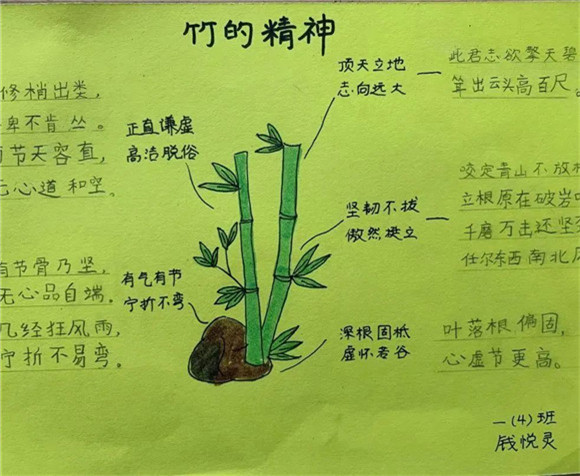 竹的精神
修梢出类,
卑不肯丛。
节天容直,
心道和空。
有节骨乃坚,
无心品自端。
几经狂风雨,
宁折不易弯。
正直谦虚
高洁脱俗
有气有节
宁折不弯
顶天立地
志向远大
坚韧不拔
傲然挺立
深根固柢
虚怀若谷
此君志欲擎天碧
耸出云头高百尺。
咬定青山不放
立根原在破岩
千磨万击还坚
任尔东西南北
叶落根偏固,
心虚节更高。
一(4)班
钱悦灵